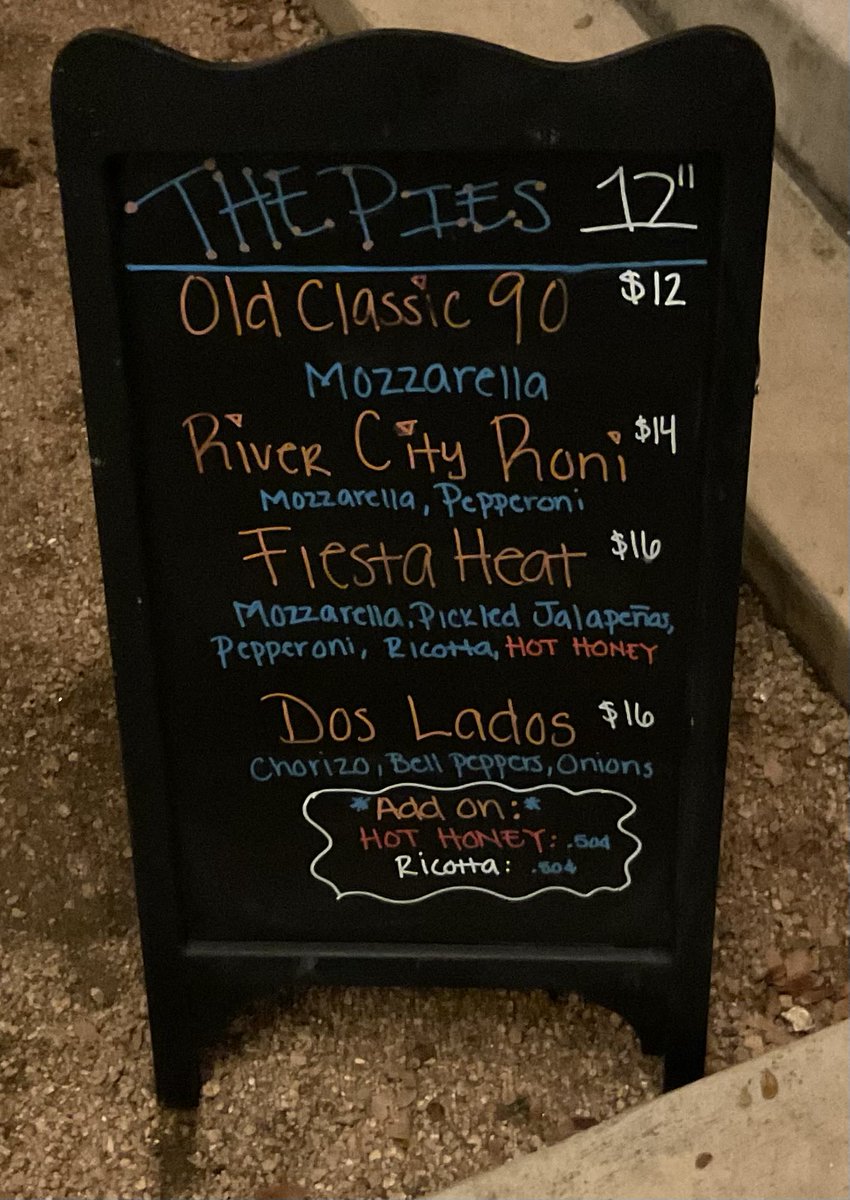 THE PIES 12"
Old Classic 90 $12
Mozzarella
River City Roni $14
Mozzarella, Pepperoni
Fiesta Heat $16
Mozzarella, Pickled Jalapeñas,
Pepperoni, Ricotta, HOT HONEY
Dos Lados $16
Chorizo, Bell Peppers, Onions
*Add on:*
HOT HONEY: .50¢
Ricotta: .50¢